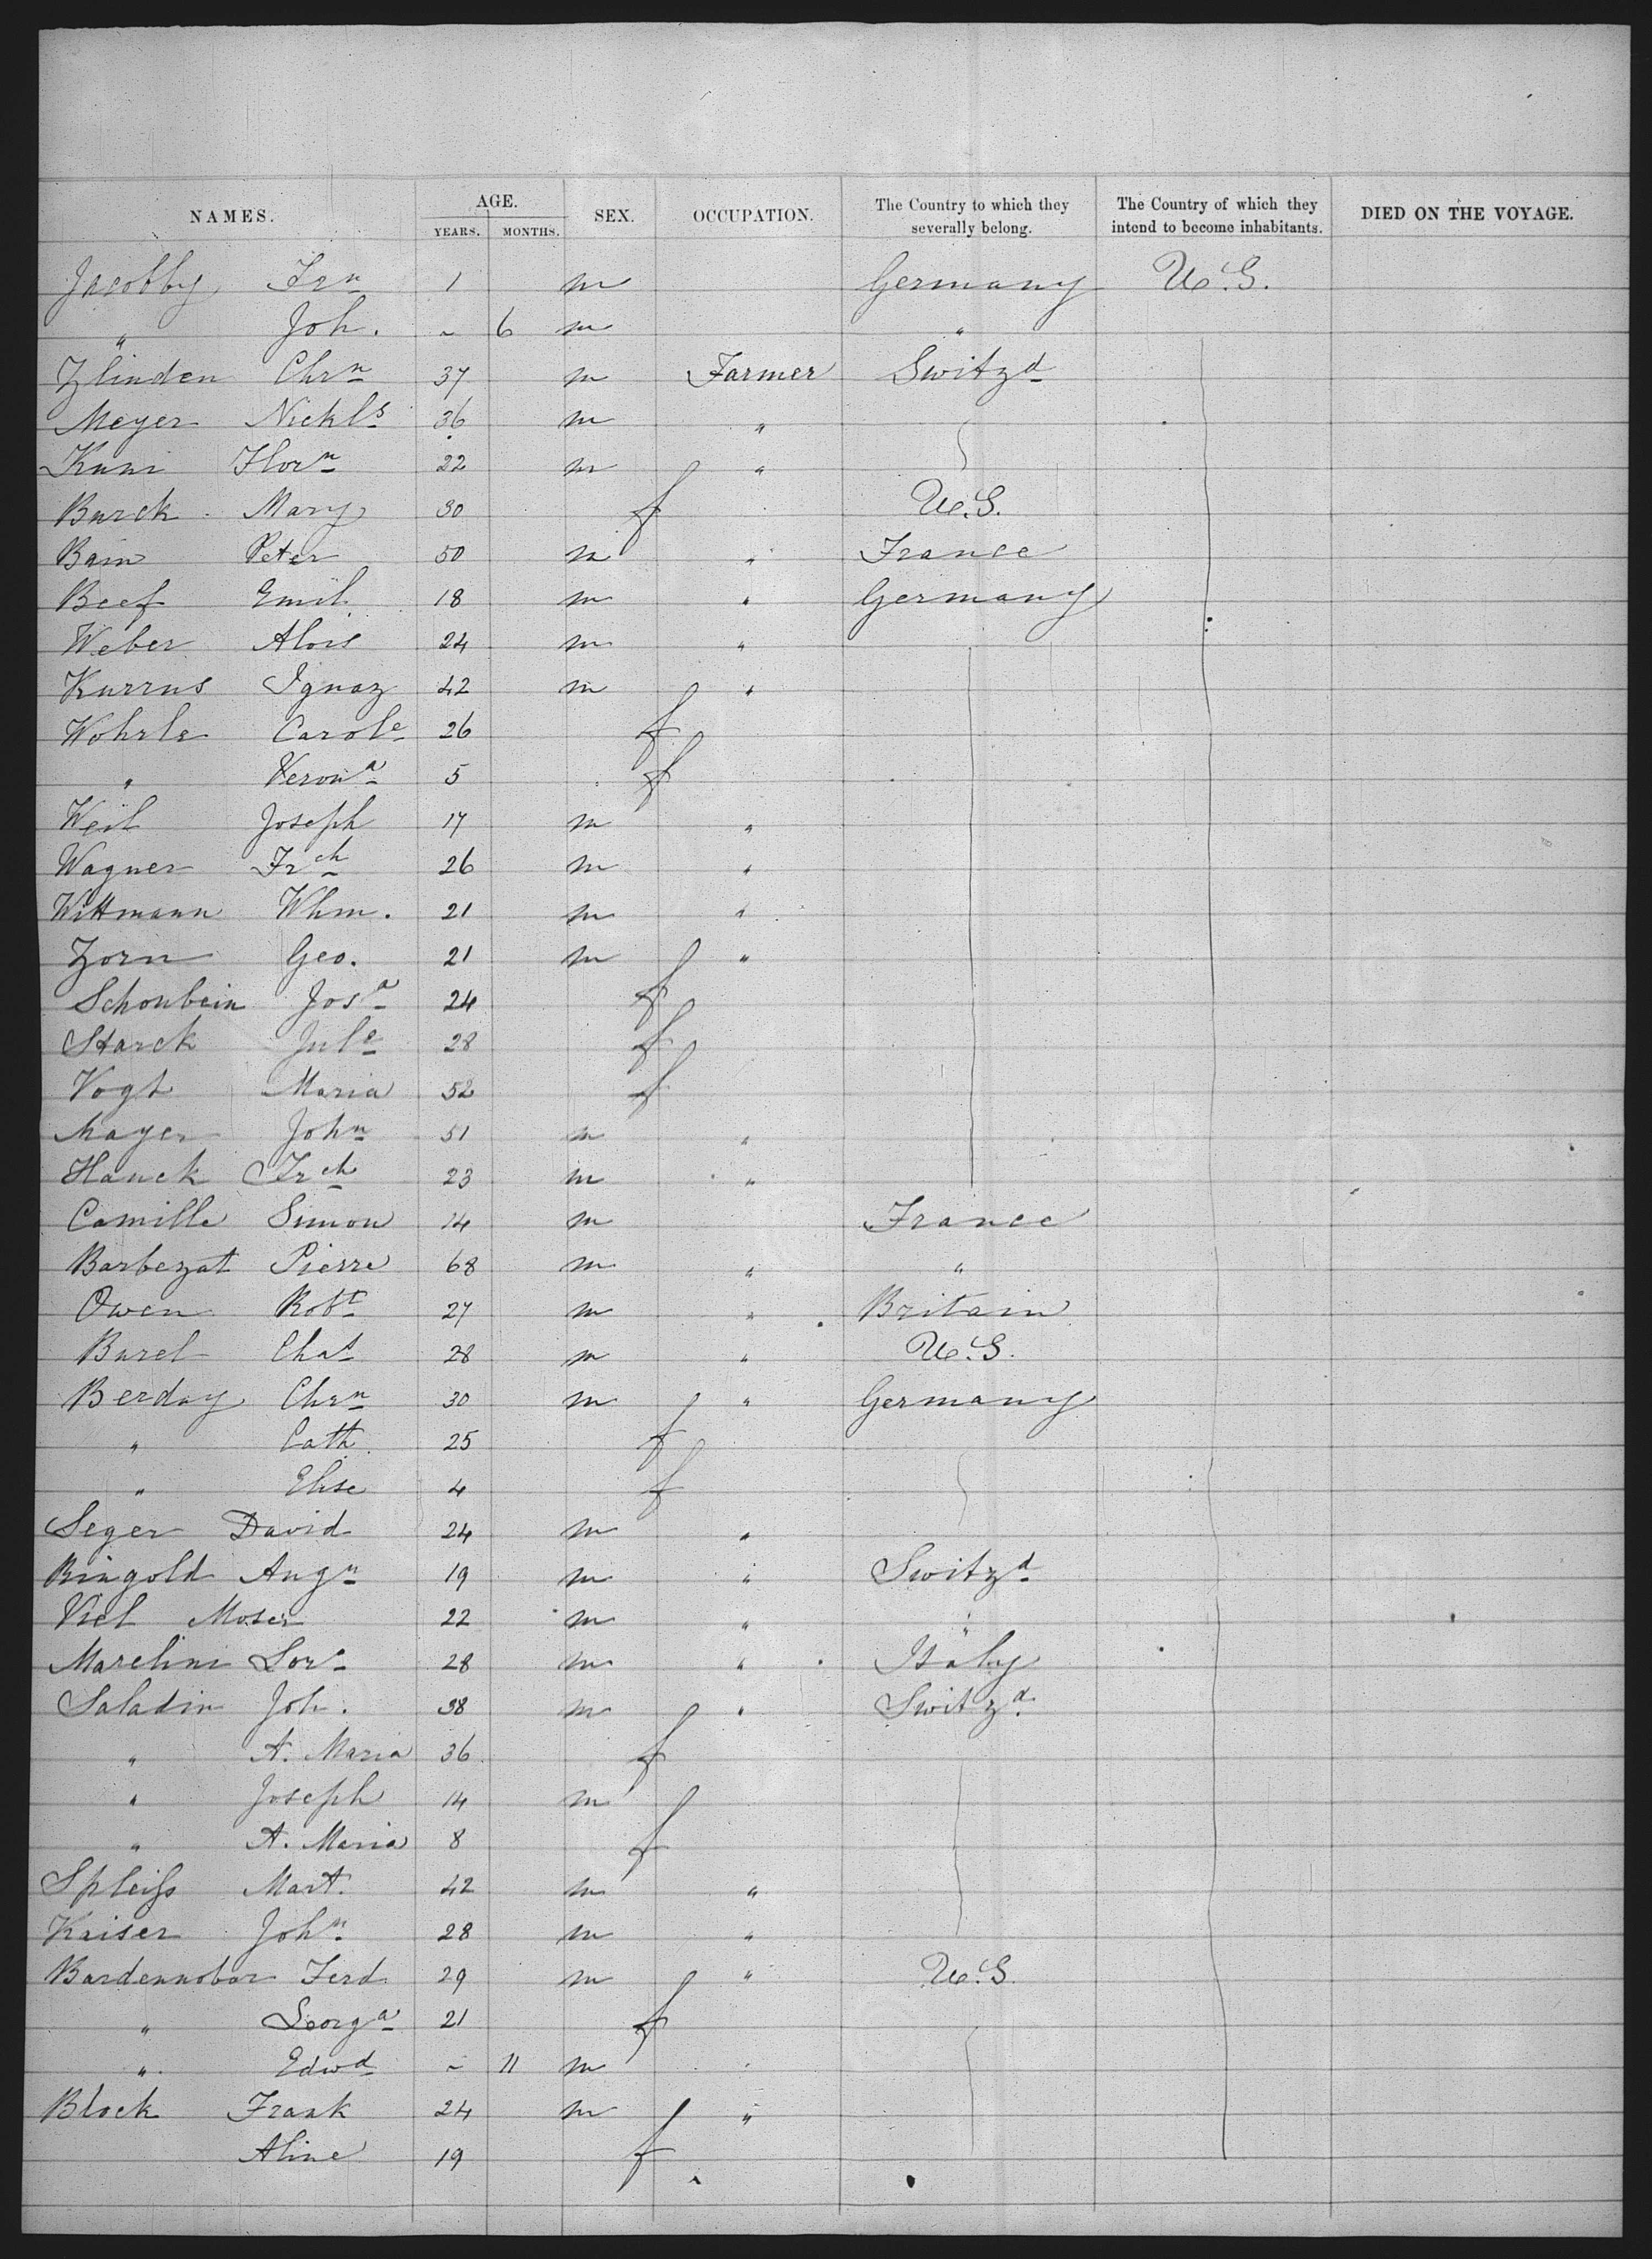 NAMES. AGE. SEX. OCCUPATION. The Country to which they severally belong. The Country of which they intend to become inhabitants. DIED ON THE VOYAGE.
YEARS. MONTHS.
Jacobby Frn 1 m Germany U.S.
" Joh. - 6 m "
Zlinden Chrn 37 m Farmer Switzd
Meyer Nickls 36 m "
Kuni Florn 22 m "
Burck Mary 30 f U.S.
Bain Peter 50 m " France
Beef Emil 18 m " Germany
Weber Alois 24 m "
Kurrus Ignaz 42 m "
Wohrle Carole 26 f
" Verona 5 f
Weil Joseph 17 m "
Wagner Frch 26 m "
Wittmann Whm. 21 m "
Zorn Geo. 21 m "
Schonbein Josa 24 f
Starck Jule 28 f
Vogt Maria 52 f
Mayer John 51 m "
Hauck Frch 23 m "
Camille Simon 14 m France
Barbezat Pierre 68 m " "
Owen Robt 27 m " Britain
Burel Chas 28 m " U.S.
Berday Chrn 30 m " Germany
" Cath. 25 f
" Elise 4 f
Seger David 24 m "
Ringold Augn 19 m " Switzd
Viel Moser 22 m " "
Marelini 28 m " Italy
Saladin Joh. 38 m " Switzd.
" A. Maria 36 f
" Joseph 14 m
" A. Maria 8 f
Spleiſs Mart. 42 m "
Kaiser John 28 m "
Bardennobar Ferd 29 m " U.S.
" Georga 21 f
" Edwd - 11 m
Block Frank 24 m "
Aline 19 f